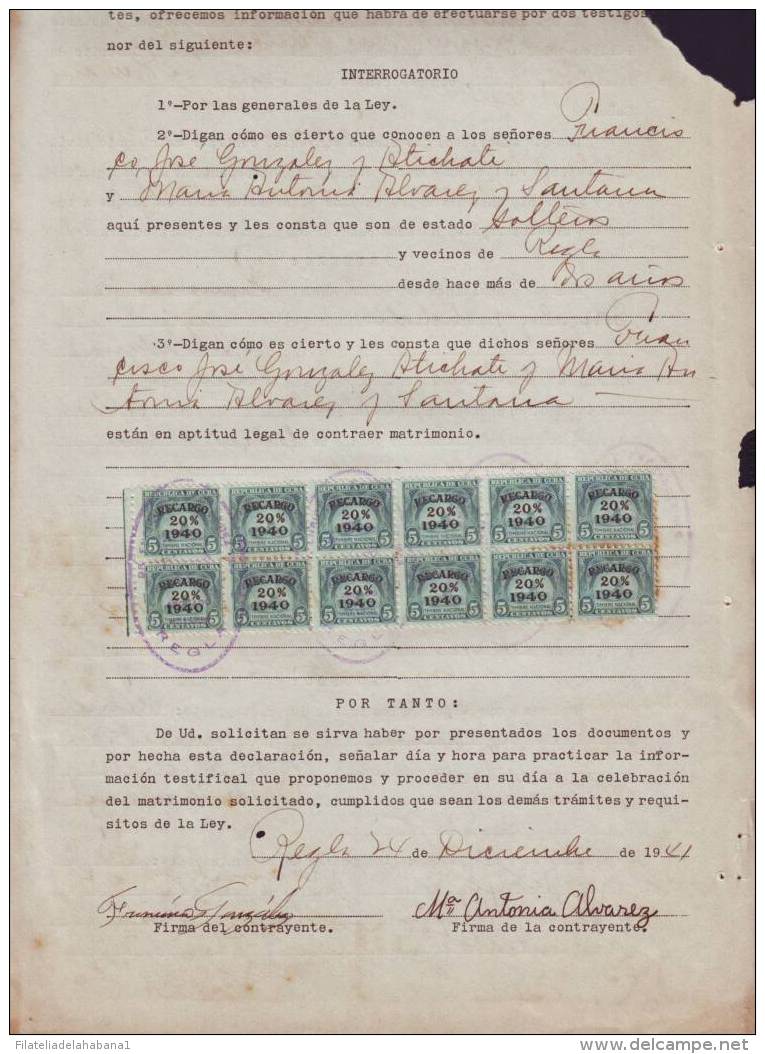 tes, ofrecemos información que habrá de efectuarse por dos testigos
nor del siguiente:
INTERROGATORIO
1º—Por las generales de la Ley.
2º—Digan cómo es cierto que conocen a los señores Francis
co José Gonzalez y Atichati
y Maria Antonia Alvarez y Santana
aquí presentes y les consta que son de estado solteros
y vecinos de Regla
desde hace más de dos años
3º—Digan cómo es cierto y les consta que dichos señores Fran
cisco José Gonzalez Atichate y Maria An
tonia Alvarez y Santana
están en aptitud legal de contraer matrimonio.
REPUBLICA DE CUBA REPUBLICA DE CUBA REPUBLICA DE CUBA REPUBLICA DE CUBA REPUBLICA DE CUBA REPUBLICA DE CUBA
RECARGO RECARGO RECARGO RECARGO RECARGO RECARGO
20% 20% 20% 20% 20% 20%
1940 1940 1940 1940 1940 1940
TIMBRE NACIONAL TIMBRE NACIONAL TIMBRE NACIONAL TIMBRE NACIONAL TIMBRE NACIONAL TIMBRE NACIONAL
5 CENTAVOS 5 5 CENTAVOS 5 5 CENTAVOS 5 5 CENTAVOS 5 5 CENTAVOS 5 5 CENTAVOS 5
REPUBLICA DE CUBA REPUBLICA DE CUBA REPUBLICA DE CUBA REPUBLICA DE CUBA REPUBLICA DE CUBA REPUBLICA DE CUBA
RECARGO RECARGO RECARGO RECARGO RECARGO RECARGO
20% 20% 20% 20% 20% 20%
1940 1940 1940 1940 1940 1940
TIMBRE NACIONAL TIMBRE NACIONAL TIMBRE NACIONAL TIMBRE NACIONAL TIMBRE NACIONAL TIMBRE NACIONAL
5 CENTAVOS 5 5 CENTAVOS 5 5 CENTAVOS 5 5 CENTAVOS 5 5 CENTAVOS 5 5 CENTAVOS 5
REGLA REGLA
POR TANTO:
De Ud. solicitan se sirva haber por presentados los documentos y
por hecha esta declaración, señalar día y hora para practicar la infor-
mación testifical que proponemos y proceder en su día a la celebración
del matrimonio solicitado, cumplidos que sean los demás trámites y requi-
sitos de la Ley.
Regla 24 de Diciembre de 1941
Francisco González Mª Antonia Alvarez
Firma del contrayente. Firma de la contrayente.
Filateliadelahabana1
delcampe.net